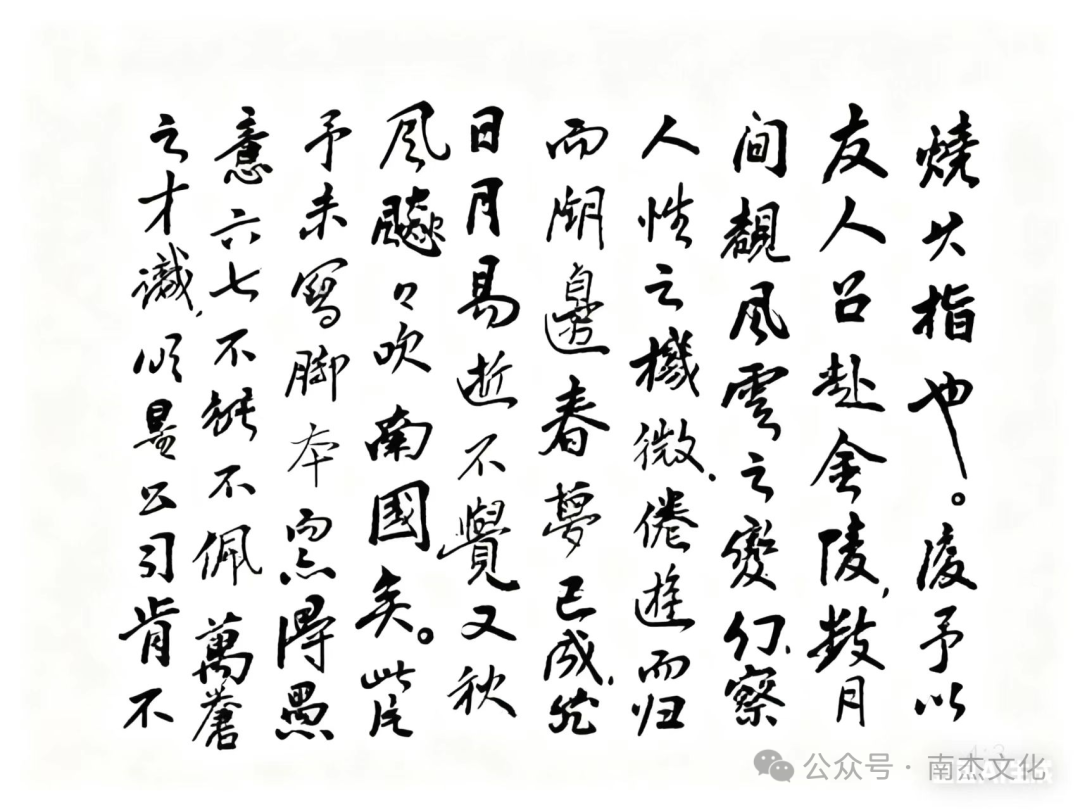 燒大指也。後予以
友人召赴金陵,數月
間覩風雲之變幻,察
人性之機微,倦遊而归
而湖邊春夢已成,然
日月易逝不覺又秋
風飈々吹南國矣。此片
予未寫脚本而亦得愚
意六七不能不佩萬蒼
之才識,順景公司肯不
公众号·南杰文化